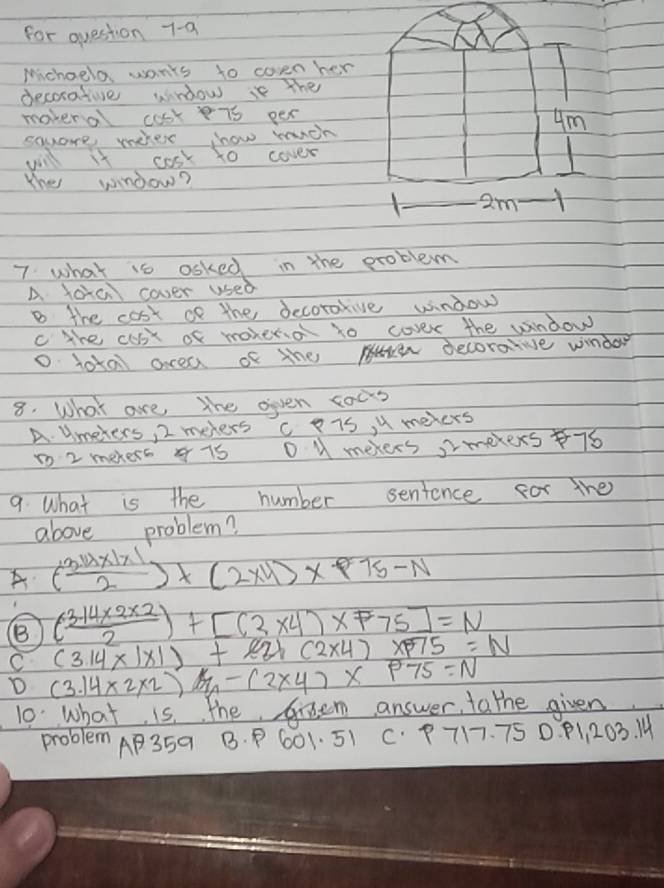 For question 7-9
Michaela wants to coven her
decorative window if the
material cost ₱75 per
square meter, how much
will it cost to cover
the window?
4m
2m
7. what is asked in the problem
A total cover used
B the cost of the decorative window
C the cost of material to cover the window
D. total area of the decorative window
8. What are the given facts
A. 4meters, 2 meters C ₱75, 4 meters
B. 2 meters ₱75 D. 4 meters, 2 meters ₱75
9. What is the number sentence for the
above problem?
A (3.14x1x1/2) + (2x4) x ₱75 - N
B (3.14x2x2/2) + [(2x4) x ₱75] = N
C. (3.14x1x1) + (2x4) x₱75 = N
D (3.14x2x2) - (2x4) x ₱75 = N
10. What is the answer, to the given
problem A₱359 B.₱601.51 C. ₱717.75 D.₱1,203.14